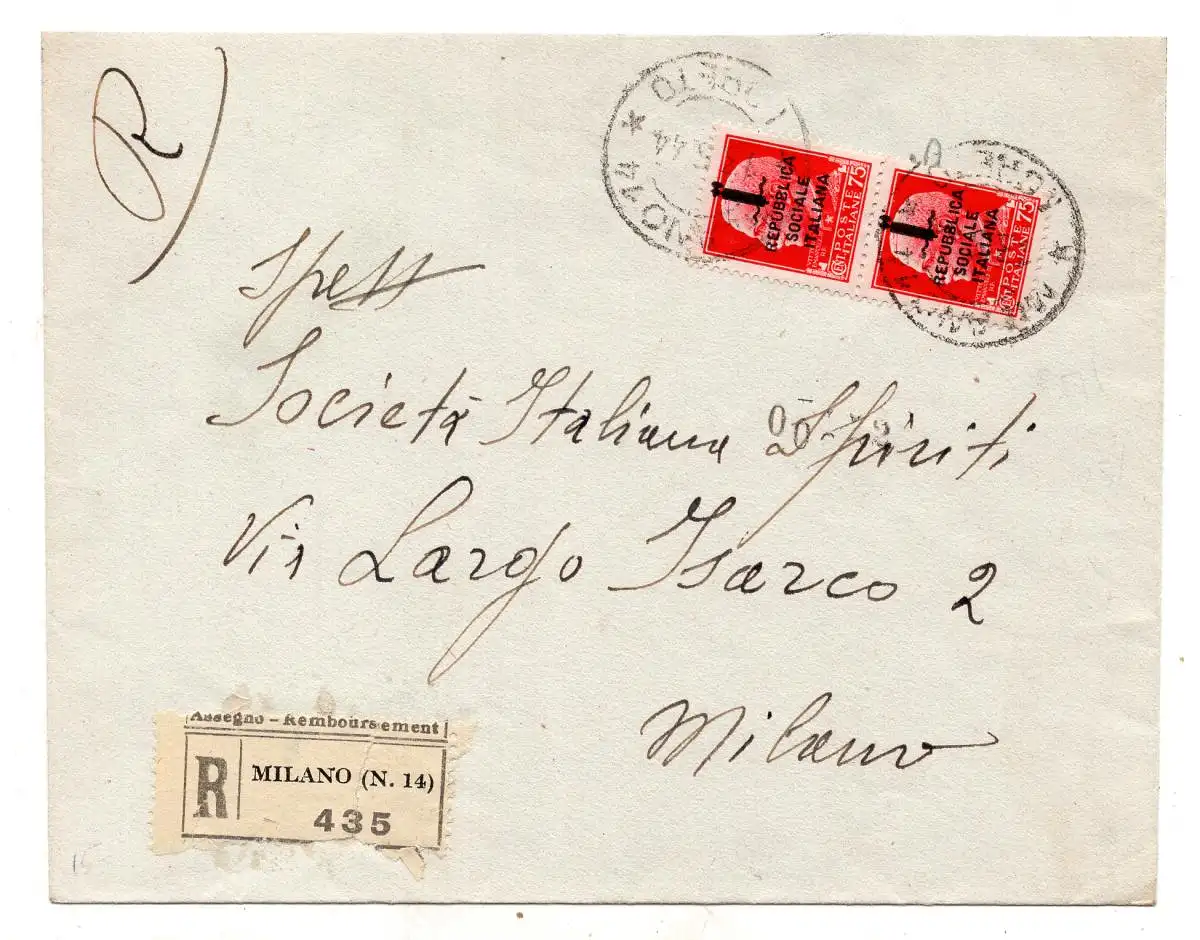 R
44
REPUBBLICA
SOCIALE
ITALIANA
POSTE
ITALIANE
75
REPUBBLICA
SOCIALE
ITALIANA
POSTE
ITALIANE
75
Spett
Società Italiana Spiriti
Via Largo Isarco 2
Milano
Assegno - Remboursement
R
MILANO (N. 14)
435
15